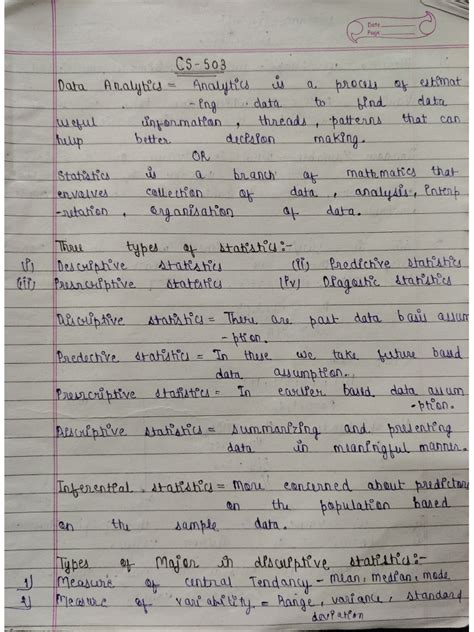 Date
Page
CS-503
Data Analytics = Analytics is a process of estimat
-ing data to find data
useful information, threads, patterns that can
help better decision making.
OR
Statistics is a branch of mathematics that
envolves collection of data, analysis, interp
-retation, organisation of data.
Three types of statistics:-
(i) Descriptive statistics (ii) Predictive statistics
(iii) Prescriptive statistics (iv) Diagostic statistics
Discriptive statistics = There are past data basis assum
-ption.
Predective statistics = In these we take future based
data assumption.
Prescriptive statistics = In earlier based data assum
-ption.
Discriptive statistics = summarizing and presenting
data in meaningful manner.
Inferential statistics = More concerned about prediction
on the population based
on the sample data.
Types of Major in discriptive statistics:-
1) Measure of central Tendancy - mean, median, mode
2) Measure of variability = Range, variance, standard
deviation